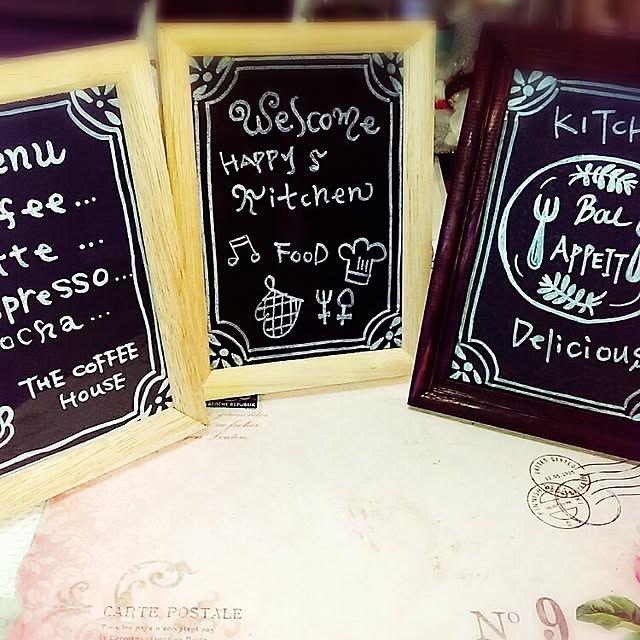 enu
fee...
tte...
presso...
ocha...
THE COFFEE
HOUSE
Welcome
HAPPY'S
Kitchen
FOOD
KITCH
APPEIT
Delicious
CARTE POSTALE
Nº 9